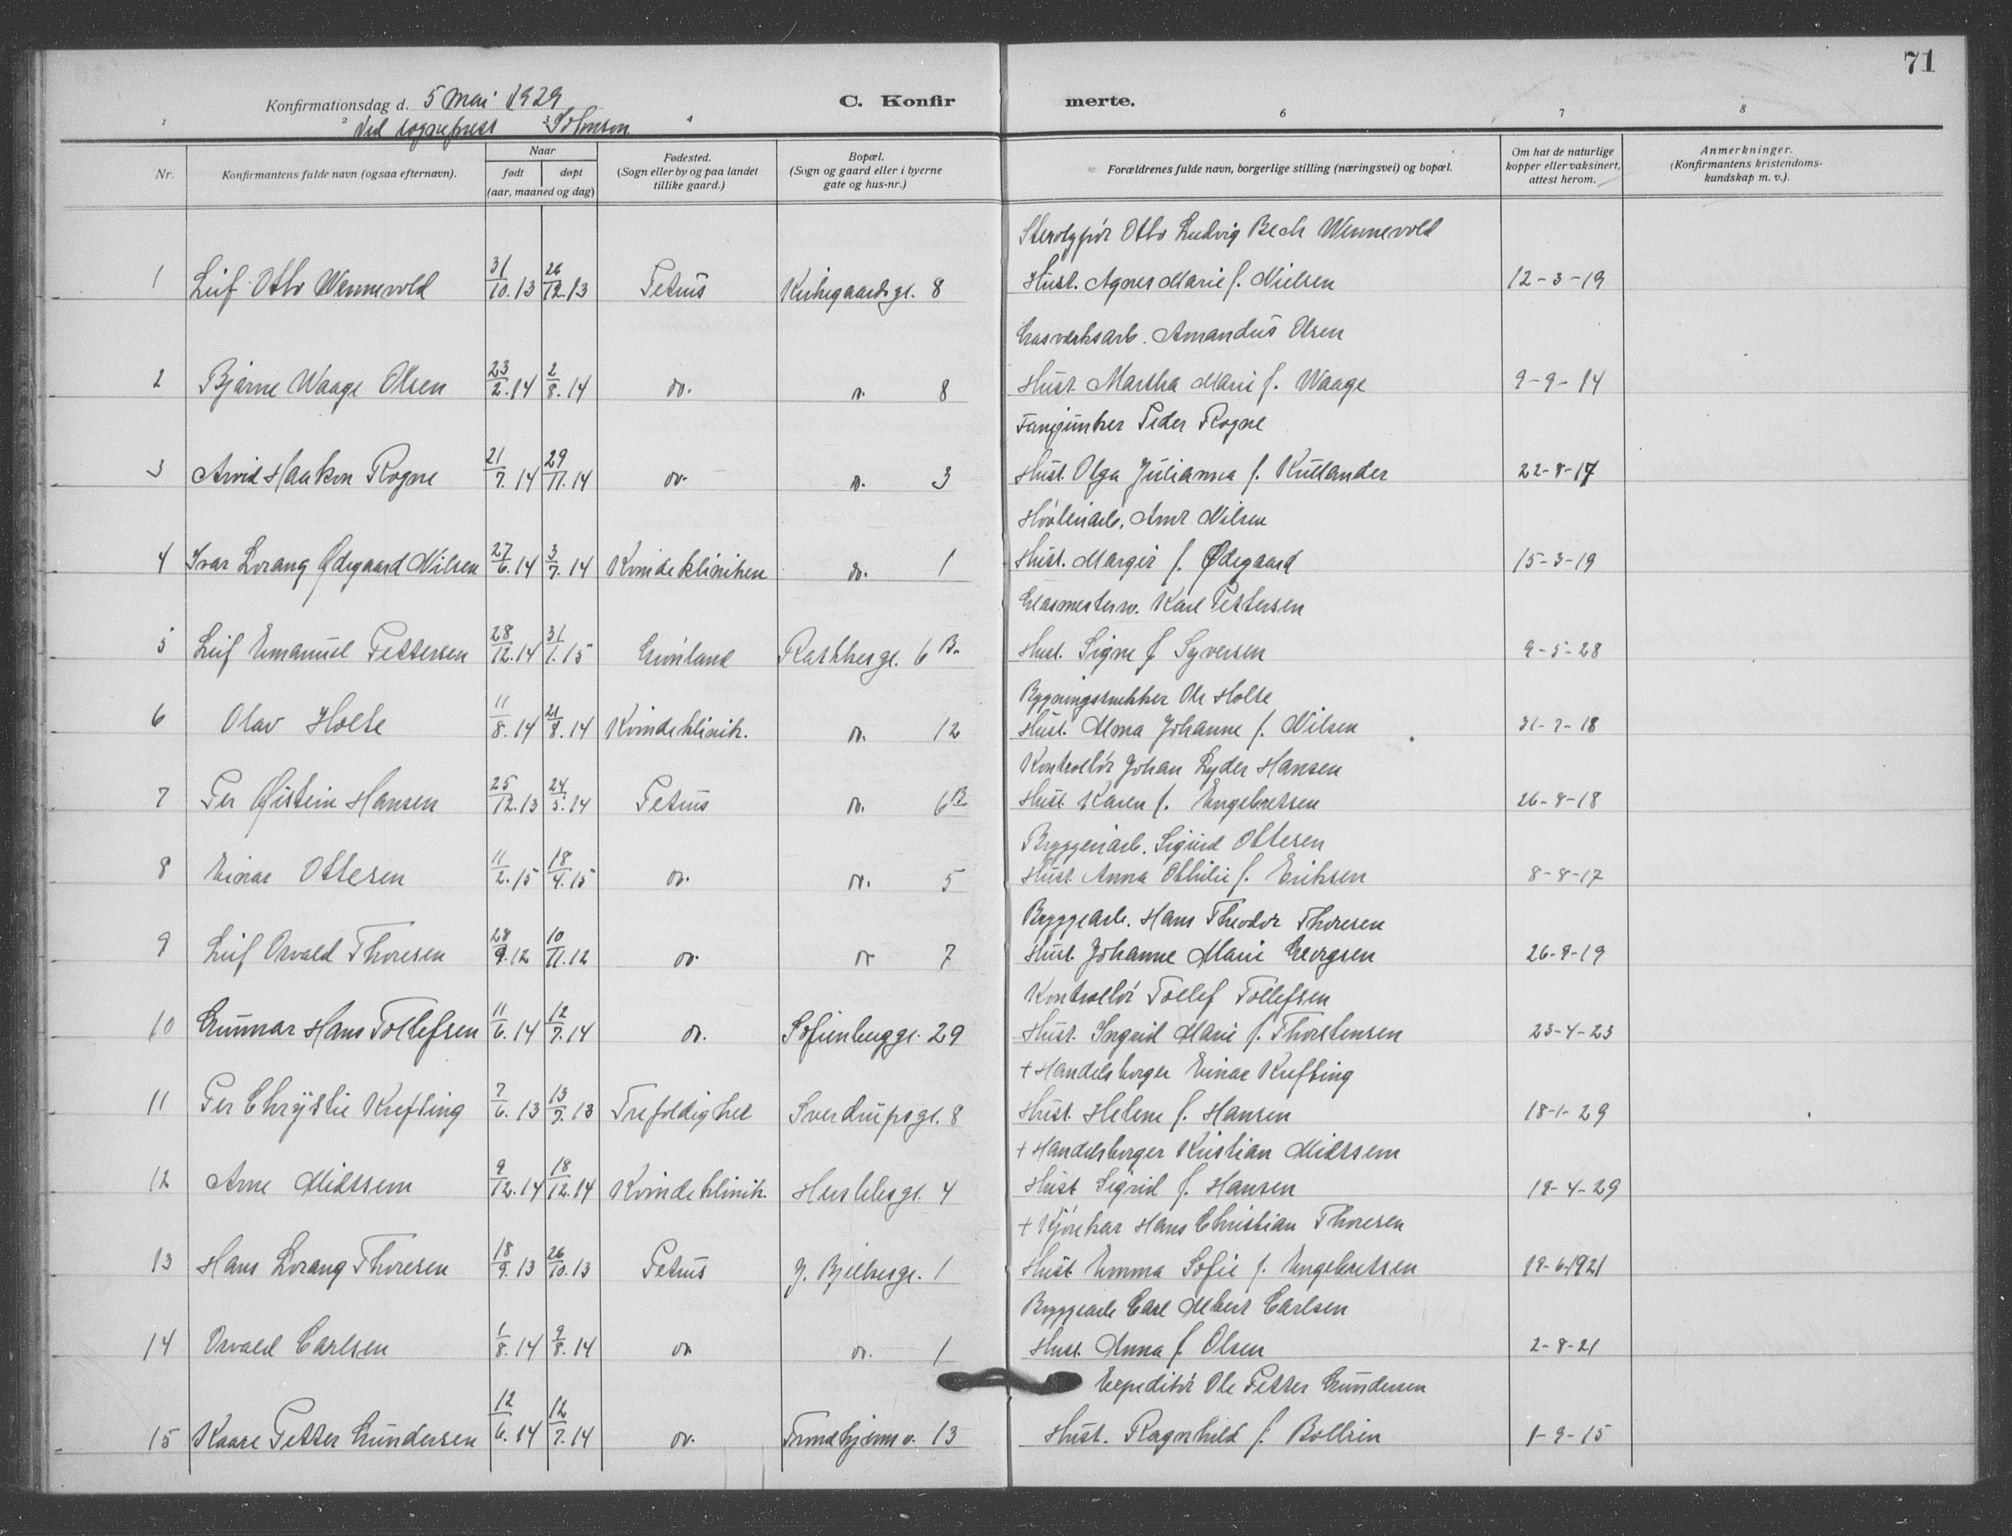 71
Konfirmationsdag d. 5 Mai 1929 C. Konfirmerte.
Ved sogneprest Johnson
1 2 3 4 6 7 8
Nr. Konfirmantens fulde navn (ogsaa efternavn). Naar født døpt (aar, maaned og dag) Fødested. (Sogn eller by og paa landet tillike gaard.) Bopæl. (Sogn og gaard eller i byerne gate og hus-nr.) Forældrenes fulde navn, borgerlige stilling (næringsvei) og bopæl. Om hat de naturlige kopper eller vaksinert, attest herom. Anmerkninger. (Konfirmantens kristendoms-kundskap m. v.).
Sterotypør Otto Ludvig Bech Wennevold
1 Leif Otto Wennevold 31/10.13 26/12.13 Petrus Kirkegaardsgt. 8 Hust. Agnes Marie f. Nielsen 12-3-19
Gasverksarb. Amandus Olsen
2 Bjarne Waage Olsen 23/2.14 2/8.14 do. do. 8 Hust. Martha Marie f. Waage 9-9-14
Fanejunker Peder Rogne
3 Arvid Haakon Rogne 21/7.14 29/11.14 do. do. 3 Hust. Olga Julianna f. Kullander 22-8-17
Høvleriarb. Arnt Nilsen
4 Ivar Lorang Ødegaard Nilsen 27/6.14 3/7.14 Kvindeklinikken do. 1 Hust. Margit f. Ødegaard 15-3-19
Glasmestersv. Karl Pettersen
5 Leif Emanuel Pettersen 28/12.14 31/1.15 Grønland Rathkesgt. 6 B. Hust. Signe f. Syversen 9-5-28
Bygningssnekker Ole Holte
6 Olav Holte 11/8.14 21/8.14 Kvindeklinik. do. 12 Hust. Alma Johanne f. Nilsen 31-7-18
Kontrollør Johan Lyder Hansen
7 Per Øistein Hansen 25/12.13 24/5.14 Petrus do. 6 B Hust. Karen f. Engebretsen 26-8-18
Bryggeriarb. Sigurd Ottesen
8 Einar Ottesen 11/2.15 18/4.15 do. do. 5 Hust. Anna Othilie f. Eriksen 8-8-17
Bryggearb. Hans Theodor Thoresen
9 Leif Osvald Thoresen 28/9.12 10/11.12 do. do 7 Hust. Johanne Marie Georgsen 26-9-19
Kontrollør Tollef Tollefsen
10 Gunnar Hans Tollefsen 11/6.14 12/7.14 do. Sofienberggt. 29 Hust. Ingrid Marie f. Thorstensen 23-4-23
+ Handelsborger Einar Krefting
11 Per Chrystie Krefting 7/6.13 13/9.13 Trefoldighet Sverdrupsgt. 8 Hust. Helene f. Hansen 18-1-29
+ Handelsborger Kristian Midtsem
12 Arne Midtsem 9/12.14 18/12.14 Kvindeklinik. Herslebsgt. 4 Hust. Sigrid f. Hansen 18-4-29
+ Kjørekar Hans Christian Thoresen
13 Hans Lorang Thoresen 18/9.13 26/10.13 Petrus J. Bjelkesgt. 1 Hust. Emma Sofie f. Engebretsen 18-6-1921
Bryggearb Carl Albert Carlsen
14 Osvald Carlsen 1/8.14 9/8.14 do do. 1 Hust. Anna f. Olsen 2-8-21
Expeditør Ole Petter Gundersen
15 Kaare Petter Gundersen 12/6.14 12/7.14 do. Trondhjemsv. 13 Hust. Ragnhild f. Bollin 1-9-15